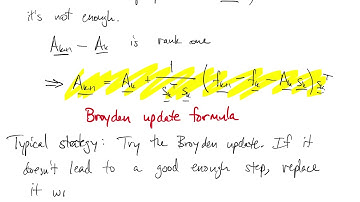 it's not enough.
A_{k+1} - A_k is rank one
⇒ A_{k+1} = A_k + 1/(s_k^T s_k) (f_{k+1} - f_k - A_k s_k) s_k^T
Broyden update formula
Typical strategy: Try the Broyden update. If it
doesn't lead to a good enough step, replace
it w